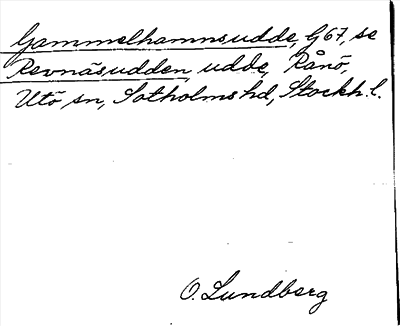 Gammelhamnsudde, G67, se
Revnäsudden, udde, Rånö,
Utö sn, Sotholms hd, Stockh. l.
O. Lundberg